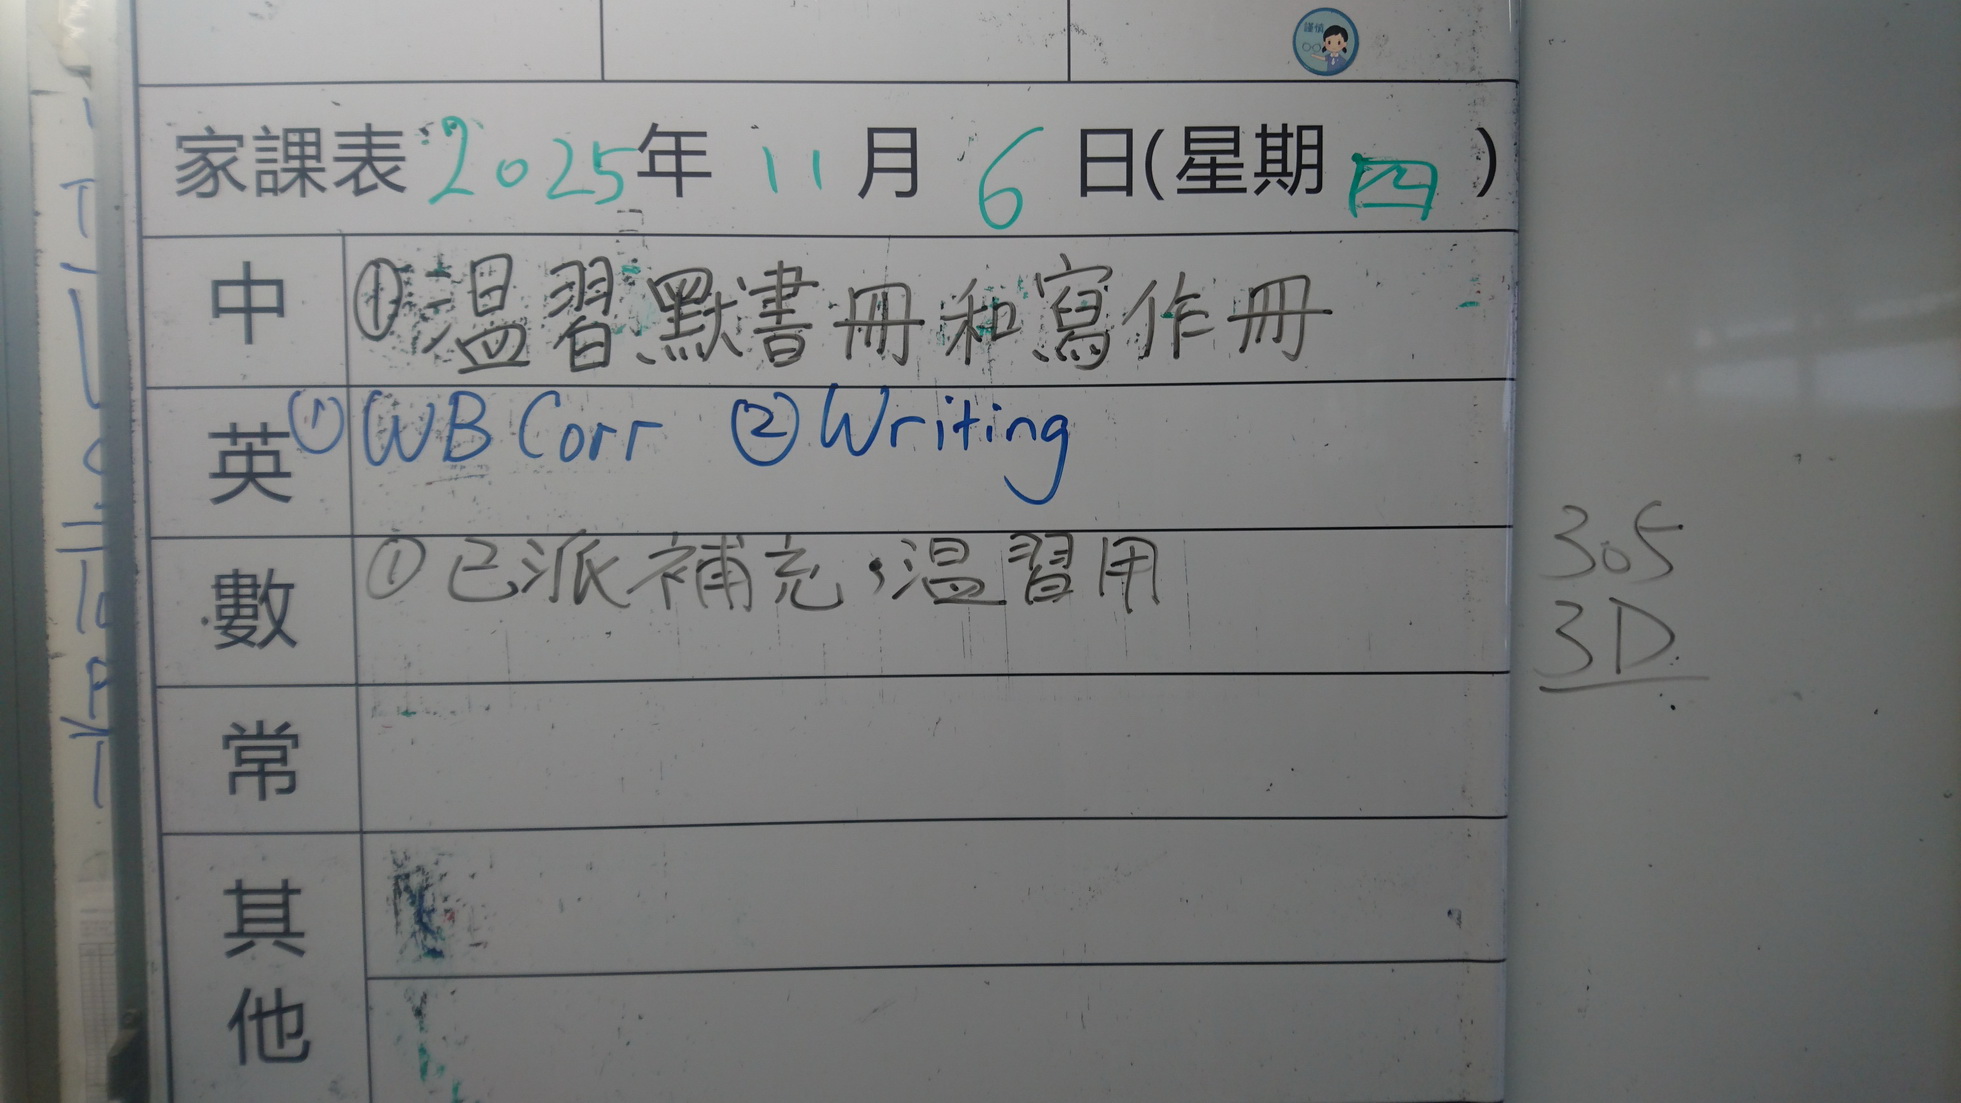 謹慎
家課表 2025年 11月 6日(星期四)
中 ①温習默書冊和寫作冊
英 ①WB Corr ②Writing
數 ①已派補充,温習用
常
其他
305
3D